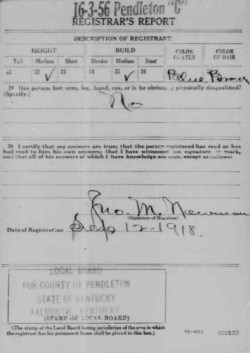 16-3-56 Pendleton "C"
REGISTRAR'S REPORT
DESCRIPTION OF REGISTRANT
HEIGHT BUILD COLOR OF EYES COLOR OF HAIR
Tall Medium Short Slender Medium Stout
21 22 ✓ 23 24 25 ✓ 26 Blue Brown
29 Has person lost arm, leg, hand, eye, or is he obviously physically disqualified?
(Specify.)
No
30 I certify that my answers are true; that the person registered has read or has
had read to him his own answers; that I have witnessed his signature or mark,
and that all of his answers of which I have knowledge are true, except as follows:
Jno. M. Newman
(Signature of Registrar)
Date of Registration Sep 12-1918.
LOCAL BOARD
FOR COUNTY OF PENDLETON
STATE OF KENTUCKY
FALMOUTH, KENTUCKY
(STAMP OF LOCAL BOARD)
(The stamp of the Local Board having jurisdiction of the area in which
the registrant has his permanent home shall be placed in this box.)
(OVER)